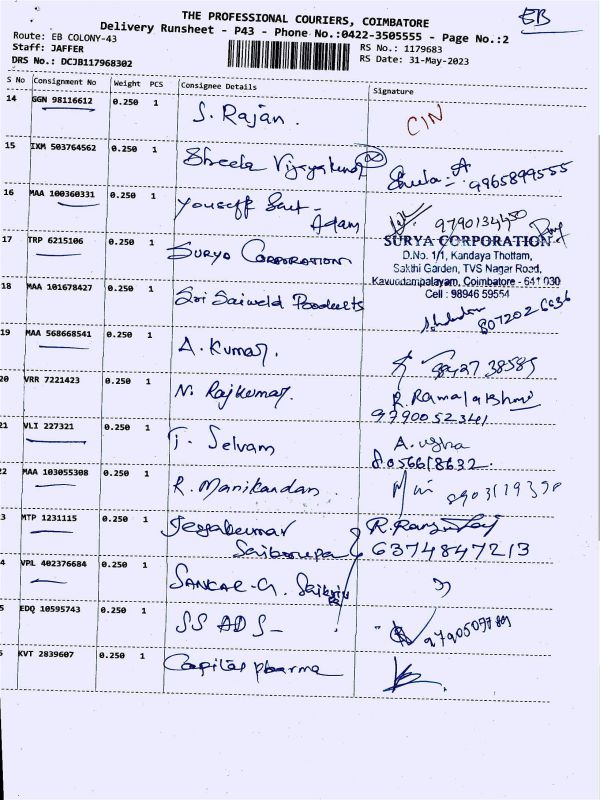 EB
THE PROFESSIONAL COURIERS, COIMBATORE
Delivery Runsheet - P43 - Phone No.:0422-3505555 - Page No.:2
Route: EB COLONY-43
Staff: JAFFER
DRS No.: DCJB117968302
RS No.: 1179683
RS Date: 31-May-2023
S No Consignment No Weight PCS Consignee Details Signature
14 GGN 98116612 0.250 1 S. Rajan. CIN
15 IXM 503764562 0.250 1 Sheela Vijayakumar
Sheela 9965899555
16 MAA 100360331 0.250 1 Youseff Sait - 9790134450
Adam
17 TRP 6215106 0.250 1 SURYA CORPORATION
SURYA CORPORATION
D.No. 1/1, Kandaya Thottam,
Sakthi Garden, TVS Nagar Road,
Kavundampalayam, Coimbatore - 641 030
Cell : 98946 59554
18 MAA 101678427 0.250 1 Sri Saiweld Products
8072026636
19 MAA 568668541 0.250 1 A. Kumar. 9842738585
20 VRR 7221423 0.250 1 N. Rajkumar. R. Ramalakshmi
9790052341
21 VLI 227321 0.250 1 T. Selvam A. usha
8056618632.
22 MAA 103055308 0.250 1 R. Manikandan. 8903119390
3 MTP 1231115 0.250 1 Jegakumar
Saibrupa 6374847213
4 VPL 402376684 0.250 1 SANKAR-G.
5 EDQ 10595743 0.250 1 SS ADS-
KVT 2839607 0.250 1 Capital pharma